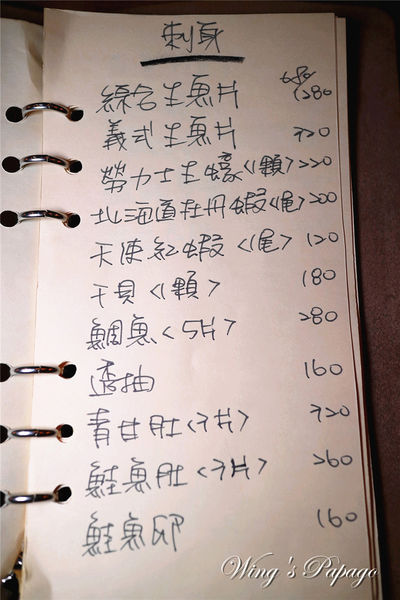 刺身
綜合生魚片 680 1280
義式生魚片 320
勞力士生蠔<1顆> 220
北海道牡丹蝦<1尾> 200
天使紅蝦<1尾> 120
干貝<1顆> 180
鯛魚<5片> 280
透抽 160
青甘肚<3片> 320
鮭魚肚<3片> 260
鮭魚卵 160
Wing's Papago